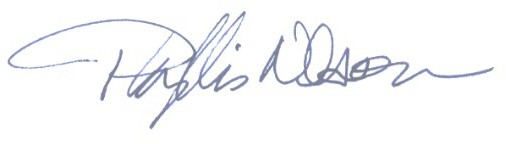 Phyllis Wilson